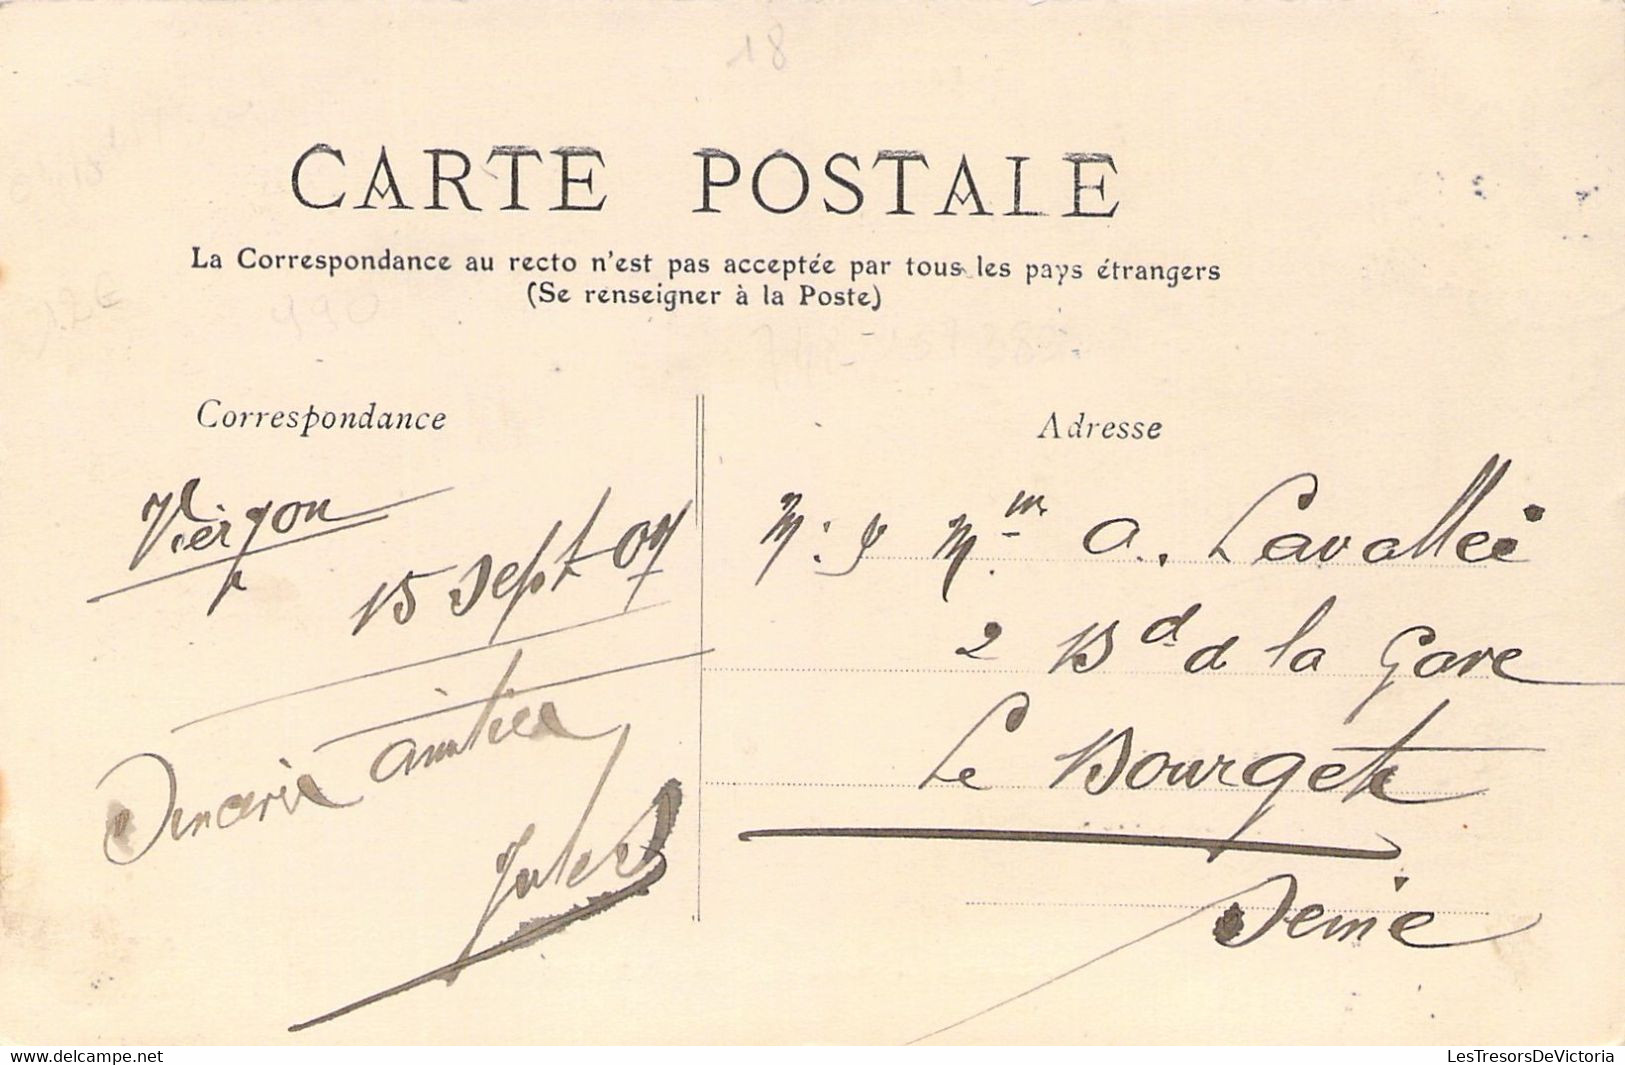 18
CARTE POSTALE
La Correspondance au recto n'est pas acceptée par tous les pays étrangers
(Se renseigner à la Poste)
12€
990
Correspondance
Vierzon
15 Sept 07
Sincère amitiée
Jules
Adresse
M. & Mme A. Lavallée
2 Bd d la Gare
Le Bourget
Seine
Delcampe.net
LesTresorsDeVictoria